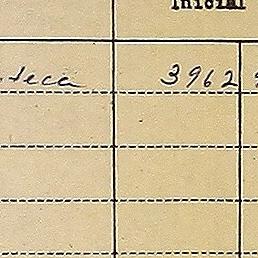 Inicial
teca 3962